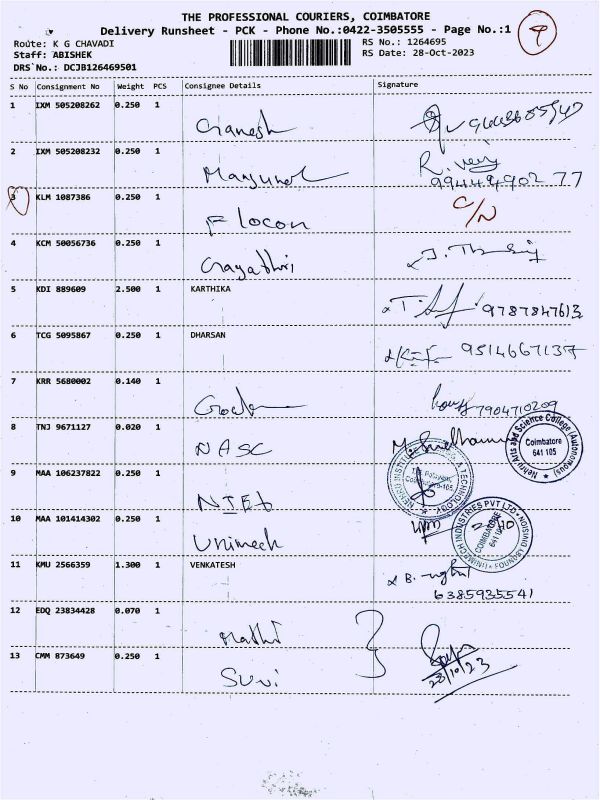 THE PROFESSIONAL COURIERS, COIMBATORE
Delivery Runsheet - PCK - Phone No.:0422-3505555 - Page No.:1
Route: K G CHAVADI
RS No.: 1264695
Staff: ABISHEK
RS Date: 28-Oct-2023
DRS No.: DCJB126469501
S No Consignment No Weight PCS Consignee Details Signature
1 IXM 505208262 0.250 1 Ganesh
2 IXM 505208232 0.250 1 R.
3 KLM 1087386 0.250 1 Flocon C/N
4 KCM 50056736 0.250 1 Gayathri
5 KDI 889609 2.500 1 KARTHIKA 9787847613
6 TCG 5095867 0.250 1 DHARSAN 9514667137
7 KRR 5680002 0.140 1 7904710209
8 TNJ 9671127 0.020 1 NASC
Nehru Arts and Science College (Autonomous)
Coimbatore
641 105
9 MAA 106237822 0.250 1 NIET
10 MAA 101414302 0.250 1 Unimech
COIMBATORE
641 105
11 KMU 2566359 1.300 1 VENKATESH
6385935541
12 EDQ 23834428 0.070 1 Mathi
13 CMM 873649 0.250 1
28/10/23